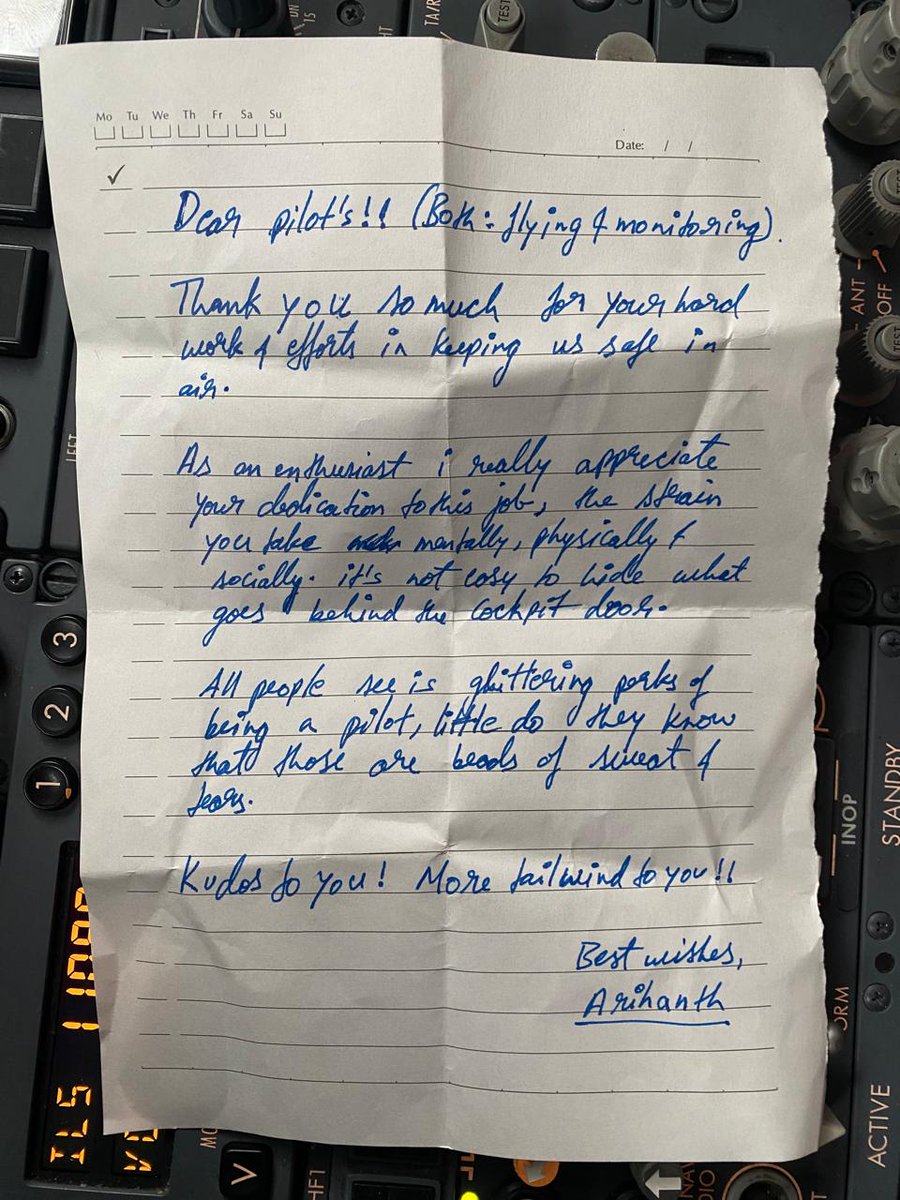 Mo Tu We Th Fr Sa Su
Date: / /
Dear pilot's!! (Both: flying & monitoring).
Thank you so much for your hard
work & efforts in keeping us safe in
air.
As an enthusiast i really appreciate
your dedication to this job, the strain
you take mentally, physically &
socially. it's not easy to hide what
goes behind the cockpit door.
All people see is glittering perks of
being a pilot, little do they know
that those are beads of sweat &
tears.
Kudos to you! More tailwind to you!!
Best wishes,
Arihanth
TEST
TA/R
TEST
ANT
OFF
TEST
LEFT
3
2
1
INOP
STANDBY
ACTIVE
ILS
V